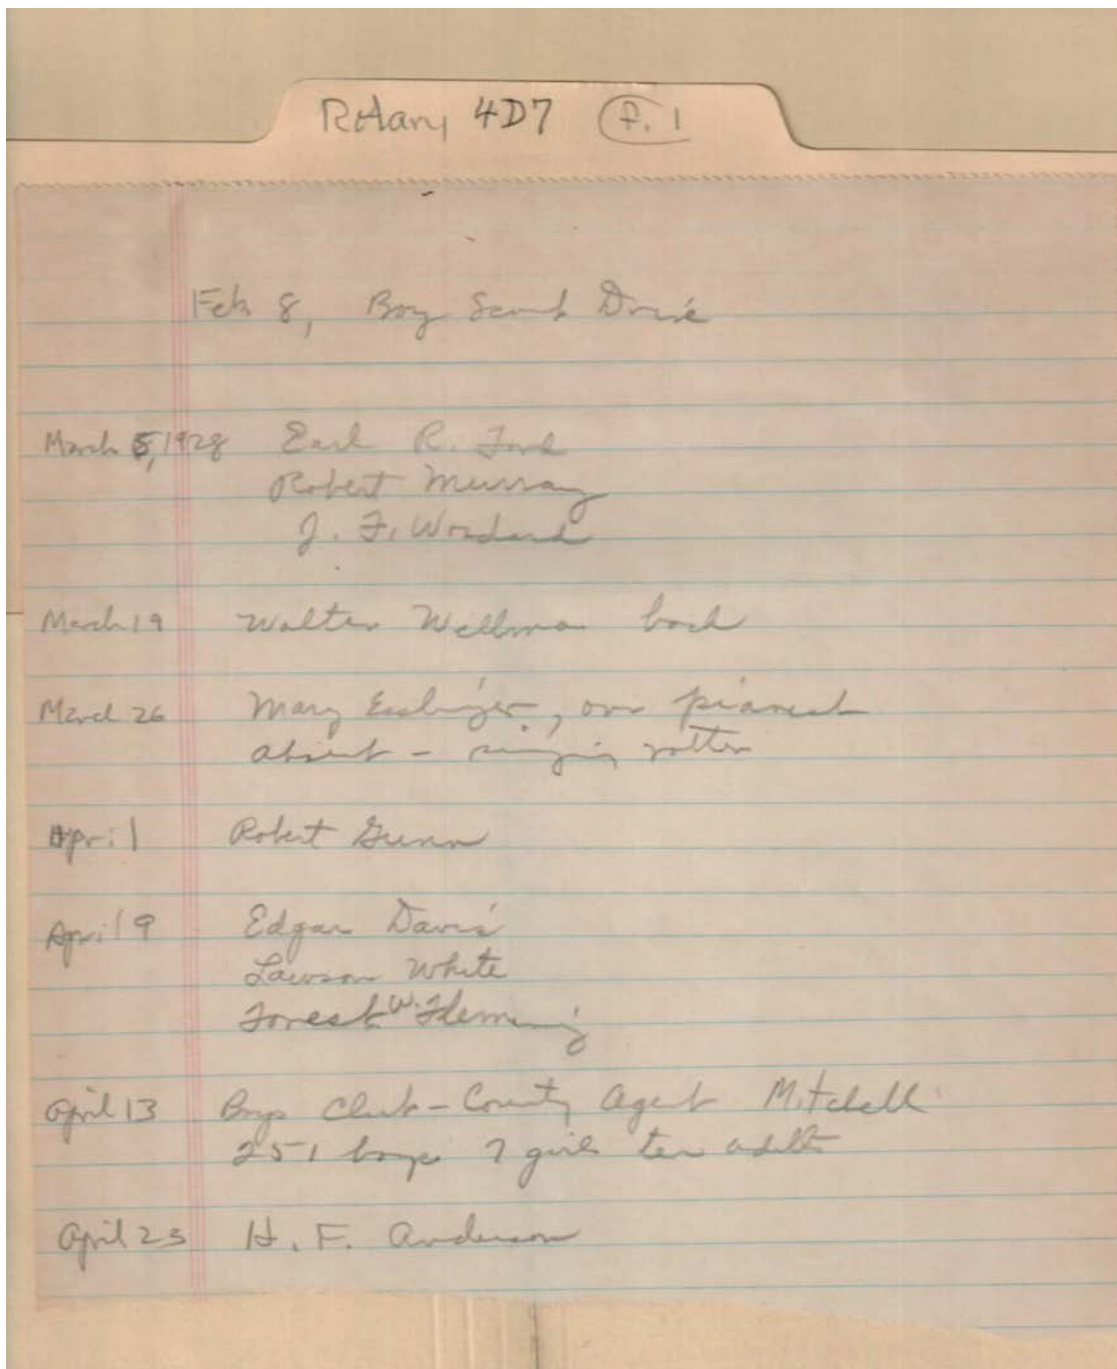 Rotary 4D7 P. 1
Feb 8, Boy Scout Drive
March 5, 1928 Earl R. Ford
Robert Murray
J. F. Woodard
March 19 Walter Wellman back
March 26 Mary Esslinger, our pianist
absent - singing rotten
April 1 Robert Gunn
April 9 Edgar Davis
Lawson White
Forest W. Fleming
April 13 Boys Club - County Agent Mitchell
251 boys 7 girls ten adults
April 23 H. F. Anderson